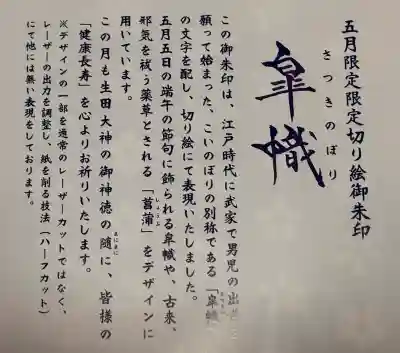 五月限定限定切り絵御朱印
さつきのぼり
皐幟
この御朱印は、江戸時代に武家で男児の出
願って始まった、こいのぼりの別称である「皐幟
の文字を配し、切り絵にて表現いたしました。
五月五日の端午の節句に飾られる皐幟や、古来、
邪気を祓う薬草とされる「菖蒲」をデザインに
しょうぶ
用いています。
この月も生田大神の御神徳の随に、皆様の
まにまに
「健康長寿」を心よりお祈りいたします。
※デザインの一部を通常のレーザーカットではなく、
レーザーの出力を調整し、紙を削る技法（ハーフカット）
にて他には無い表現をしております。